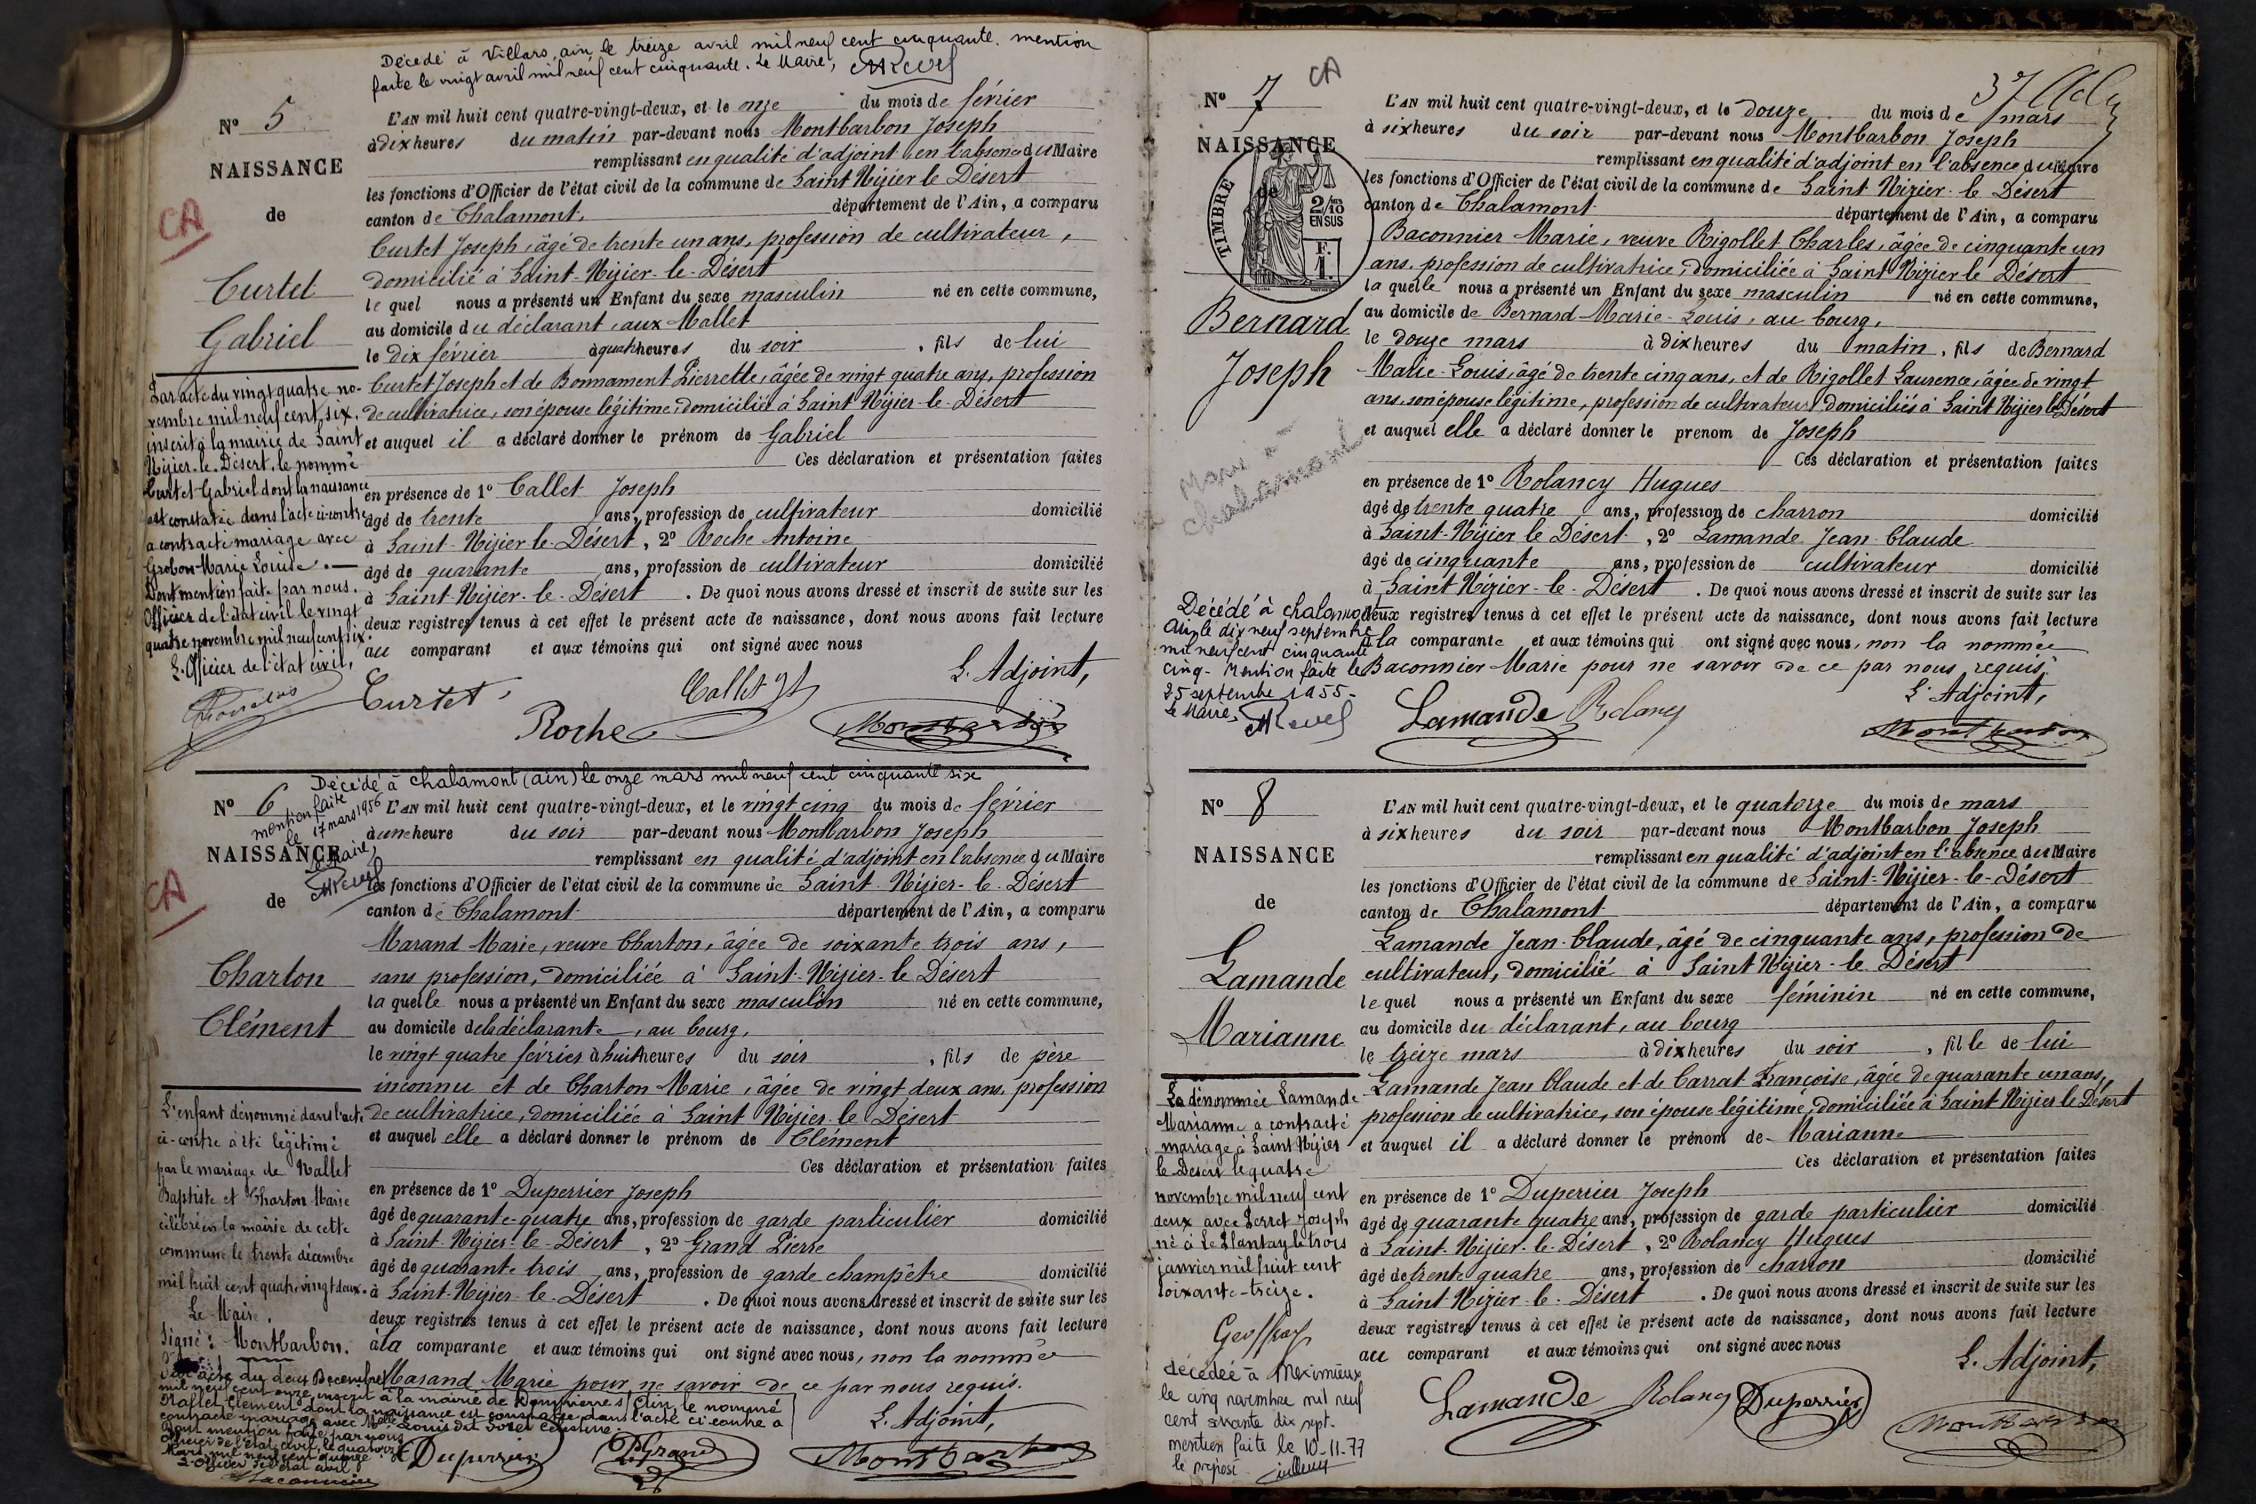 Décédé à Villars, ain le treize avril mil neuf cent cinquante. mention
faite le vingt avril mil neuf cent cinquante. Le Maire,
N° 5
NAISSANCE
de
CA
Curtet
Gabriel
L'AN mil huit cent quatre-vingt-deux, et le onze du mois de février
à dix heures du matin par-devant nous Montbarbon Joseph
remplissant en qualité d'adjoint en l'absence du Maire
les fonctions d'Officier de l'état civil de la commune de Saint Nizier le Désert
canton de Chalamont, département de l'Ain, a comparu
Curtet Joseph, âgé de trente un ans, profession de cultivateur,
domicilié à Saint-Nizier-le-Désert
le quel nous a présenté un Enfant du sexe masculin né en cette commune,
au domicile du déclarant, aux Mallet
le dix février à quatre heures du soir, fils de lui
Curtet Joseph et de Bonnament Pierrette, âgée de vingt quatre ans, profession
de cultivatrice, son épouse légitime, domiciliée à Saint Nizier-le-Désert
et auquel il a déclaré donner le prénom de Gabriel
Ces déclaration et présentation faites
en présence de 1° Callet Joseph
âgé de trente ans, profession de cultivateur domicilié
à Saint-Nizier-le-Désert, 2° Roche Antoine
âgé de quarante ans, profession de cultivateur domicilié
à Saint-Nizier-le-Désert. De quoi nous avons dressé et inscrit de suite sur les
deux registres tenus à cet effet le présent acte de naissance, dont nous avons fait lecture
au comparant et aux témoins qui ont signé avec nous
L'Adjoint,
Curtet
Callet
Roche
Montbarbon
Par acte du vingt quatre no-
vembre mil neuf cent six,
inscrit à la mairie de Saint
Nizier-le-Désert, le nommé
Curtet Gabriel dont la naissance
est constatée dans l'acte ci-contre
a contracté mariage avec
Grobon Marie Louise.
Dont mention faite par nous
Officier de l'état civil le vingt
quatre novembre mil neuf cent six.
L'Officier de l'état civil,
Décédé à Chalamont (ain) le onze mars mil neuf cent cinquante six
mention faite
le 17 mars 1956
Le Maire,
N° 6
NAISSANCE
de
CA
Charton
Clément
L'AN mil huit cent quatre-vingt-deux, et le vingt cinq du mois de février
à une heure du soir par-devant nous Montbarbon Joseph
remplissant en qualité d'adjoint en l'absence du Maire
les fonctions d'Officier de l'état civil de la commune de Saint-Nizier-le-Désert
canton de Chalamont département de l'Ain, a comparu
Marand Marie, veuve Charton, âgée de soixante trois ans,
sans profession, domiciliée à Saint-Nizier-le Désert
la quelle nous a présenté un Enfant du sexe masculin né en cette commune,
au domicile de la déclarante, au bourg,
le vingt quatre février à huit heures du soir, fils de père
inconnu et de Charton Marie, âgée de vingt deux ans, profession
de cultivatrice, domiciliée à Saint Nizier-le Désert
et auquel elle a déclaré donner le prénom de Clément
Ces déclaration et présentation faites
en présence de 1° Duperrier Joseph
âgé de quarante-quatre ans, profession de garde particulier domicilié
à Saint-Nizier-le-Désert, 2° Grand Pierre
âgé de quarante trois ans, profession de garde champêtre domicilié
à Saint-Nizier-le-Désert. De quoi nous avons dressé et inscrit de suite sur les
deux registres tenus à cet effet le présent acte de naissance, dont nous avons fait lecture
à la comparante et aux témoins qui ont signé avec nous, non la nommée
Marand Marie pour ne savoir de ce par nous requis.
L'Adjoint,
Duperrier
P. Grand
Montbarbon
L'enfant dénommé dans l'acte
ci-contre a été légitimé
par le mariage de Nallet
Baptiste et Charton Marie
célébré en la mairie de cette
commune le trente décembre
mil huit cent quatre vingt deux.
Le Maire,
Signé: Montbarbon.
acte du deux Décembre
mil neuf cent onze, inscrit à la mairie de Dompierre s/ Ain, le nommé
Nallet Clément dont la naissance est constatée dans l'acte ci-contre a
contracté mariage avec
Dont mention faite par nous
Officier de l'état civil, le quatorze
L'Officier de l'état civil
37
N° 7
CA
NAISSANCE
de
TIMBRE
2/10
EN SUS
F.
1.
Bernard
Joseph
L'AN mil huit cent quatre-vingt-deux, et le douze du mois de mars
à six heures du soir par-devant nous Montbarbon Joseph
remplissant en qualité d'adjoint en l'absence du Maire
les fonctions d'Officier de l'état civil de la commune de Saint-Nizier-le Désert
canton de Chalamont département de l'Ain, a comparu
Baconnier Marie, veuve Rigollet Charles, âgée de cinquante un
ans, profession de cultivatrice, domiciliée à Saint Nizier le Désert
la quelle nous a présenté un Enfant du sexe masculin né en cette commune,
au domicile de Bernard Marie-Louis, au bourg,
le douze mars à dix heures du matin, fils de Bernard
Marie-Louis, âgé de trente cinq ans, et de Rigollet Laurence, âgée de vingt
ans, son épouse légitime, profession de cultivateurs, domiciliés à Saint Nizier le Désert
et auquel elle a déclaré donner le prenom de Joseph
Ces déclaration et présentation faites
en présence de 1° Rolancy Hugues
âgé de trente quatre ans, profession de charron domicilié
à Saint-Nizier le Désert, 2° Lamande Jean Claude
âgé de cinquante ans, profession de cultivateur domicilié
à Saint Nizier-le-Désert. De quoi nous avons dressé et inscrit de suite sur les
deux registres tenus à cet effet le présent acte de naissance, dont nous avons fait lecture
à la comparante et aux témoins qui ont signé avec nous, non la nommée
Baconnier Marie pour ne savoir de ce par nous requis.
L'Adjoint,
Lamande
Rolancy
Montbarbon
chalamont
Décédé à Chalamont
Ain le dix neuf septembre
mil neuf cent cinquante
cinq. Mention faite le
25 septembre 1955.
Le Maire,
N° 8
NAISSANCE
de
Lamande
Marianne
L'AN mil huit cent quatre-vingt-deux, et le quatorze du mois de mars
à six heures du soir par-devant nous Montbarbon Joseph
remplissant en qualité d'adjoint en l'absence du Maire
les fonctions d'Officier de l'état civil de la commune de Saint-Nizier-le-Désert
canton de Chalamont département de l'Ain, a comparu
Lamande Jean-Claude, âgé de cinquante ans, profession de
cultivateur, domicilié à Saint Nizier-le Désert
le quel nous a présenté un Enfant du sexe féminin né en cette commune,
au domicile du déclarant, au bourg
le treize mars à dix heures du soir, fille de lui
Lamande Jean Claude et de Carrat Françoise, âgée de quarante un ans,
profession de cultivatrice, son épouse légitime, domiciliée à Saint Nizier le Désert
et auquel il a déclaré donner le prénom de Marianne
Ces déclaration et présentation faites
en présence de 1° Duperrier Joseph
âgé de quarante quatre ans, profession de garde particulier domicilié
à Saint-Nizier-le-Désert, 2° Rolancy Hugues
âgé de trente quatre ans, profession de charron domicilié
à Saint Nizier-le-Désert. De quoi nous avons dressé et inscrit de suite sur les
deux registres tenus à cet effet le présent acte de naissance, dont nous avons fait lecture
au comparant et aux témoins qui ont signé avec nous
L'Adjoint,
Lamande
Rolancy
Duperrier
Montbarbon
La dénommée Lamande
Marianne a contracté
mariage à Saint Nizier
le Désert le quatre
novembre mil neuf cent
deux avec Perret Joseph
né à Le Plantay le trois
janvier mil huit cent
soixante-treize.
Geoffray
décédée à Meximieux
le cinq novembre mil neuf
cent soixante dix sept.
mention faite le 10-11-77
le préposé